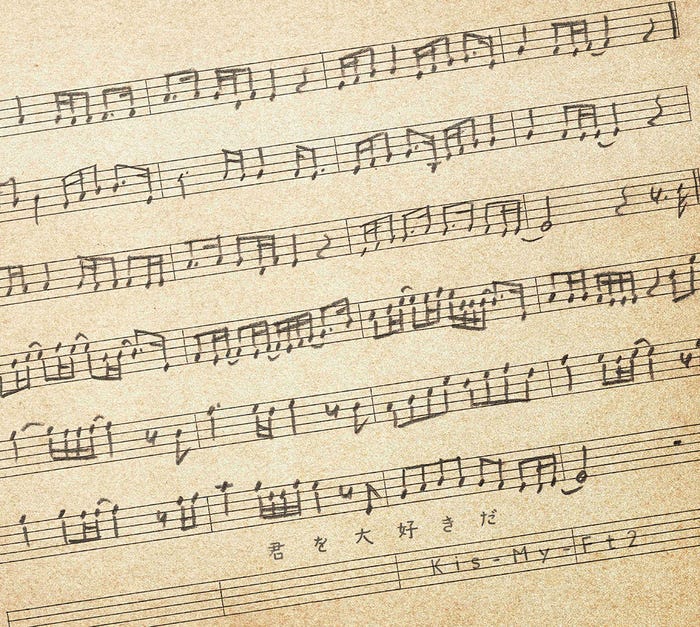 君を大好きだ
Kis-My-Ft2